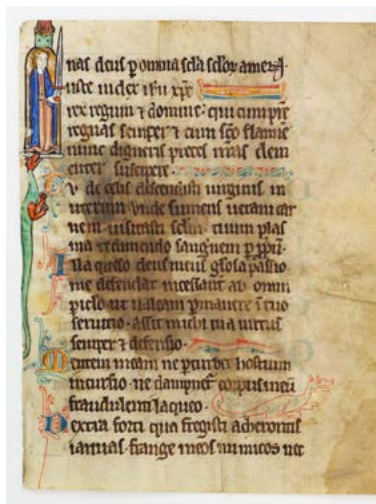 nas deus ꝑ omnia sc̄la sc̄loꝝ amen
uste iudex ih̄u xp̄e
rex regum ⁊ domine: qui cum pr̄e
regnas semper ⁊ cum sc̄o flamine
nunc digneris preces meas clem
enter suscipe
u de celis descendisti uirginis in
uterum unde sumens ueram car
nem uisitasti sc̄lm tuum plas
ma redimendo sanguinem ꝑ
lla queso deus meus gl̄osa passio
me defendat incessant ab omni
piclo ut ualeam ꝑmanere ī tuo
seruitio. assit michi tua uirtus
semper ⁊ defensio.
Mentem meam ne ꝑturbet hostium
incursio ne dampnet corpus meū
fraudulenti laqueo.
Dextra forti qua fregisti acherontis
ianuas. frange meos inimicos nec